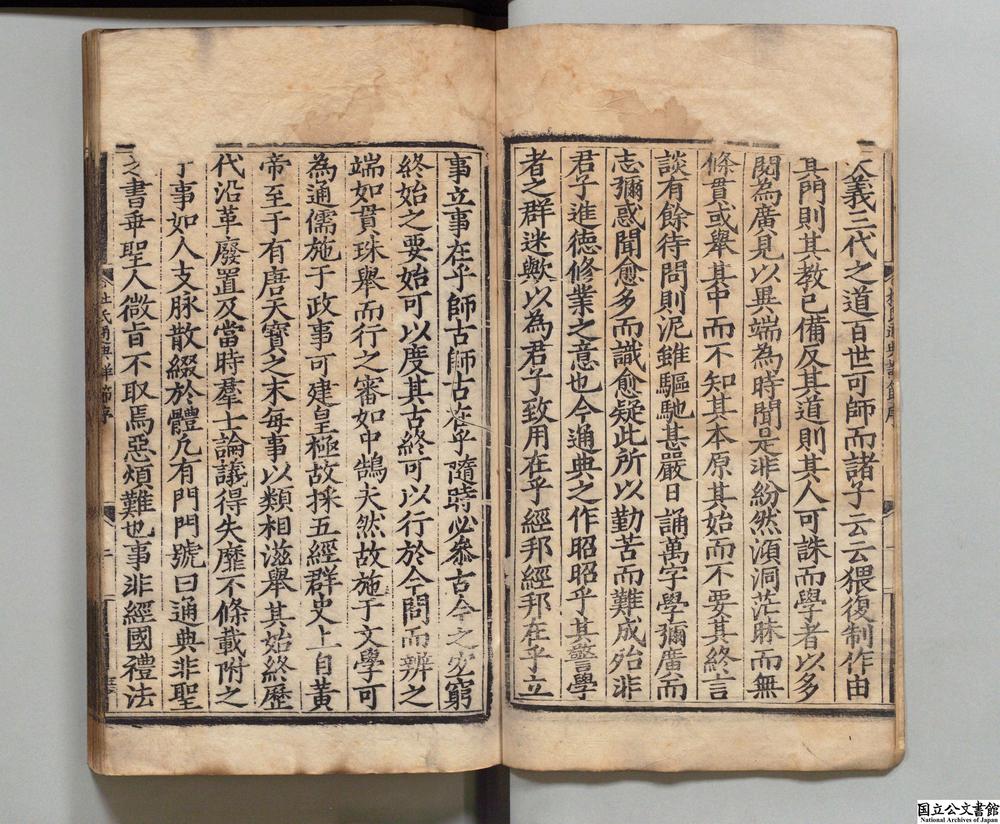 大義三代之道百世可師而諸子云云猥復制作由
其門則其教已備反其道則其人可誅而學者以多
閱為廣見以異端為時聞是非紛然澒洞茫昧而無
條貫或舉其中而不知其本原其始而不要其終言
談有餘待問則泥雖驅馳甚嚴日誦萬字學彌廣而
志彌惑聞愈多而識愈疑此所以勤苦而難成殆非
君子進德修業之意也今通典之作昭昭乎其警學
者之群迷歟以為君子致用在乎經邦經邦在乎立
事立事在乎師古師古在乎隨時必叅古今之宜窮
終始之要始可以度其古終可以行於今問而辨之
端如貫珠舉而行之審如中鵠夫然故施于文學可
為通儒施于政事可建皇極故採五經群史上自黃
帝至于有唐天寶之末每事以類相滋舉其始終歷
代沿革廢置及當時羣士論議得失靡不條載附之
于事如人支脉散綴於體凢有門門號曰通典非聖
之書乖聖人微旨不取焉惡煩難也事非經國禮法
杜氏通典詳節序
二
国立公文書館
National Archives of Japan